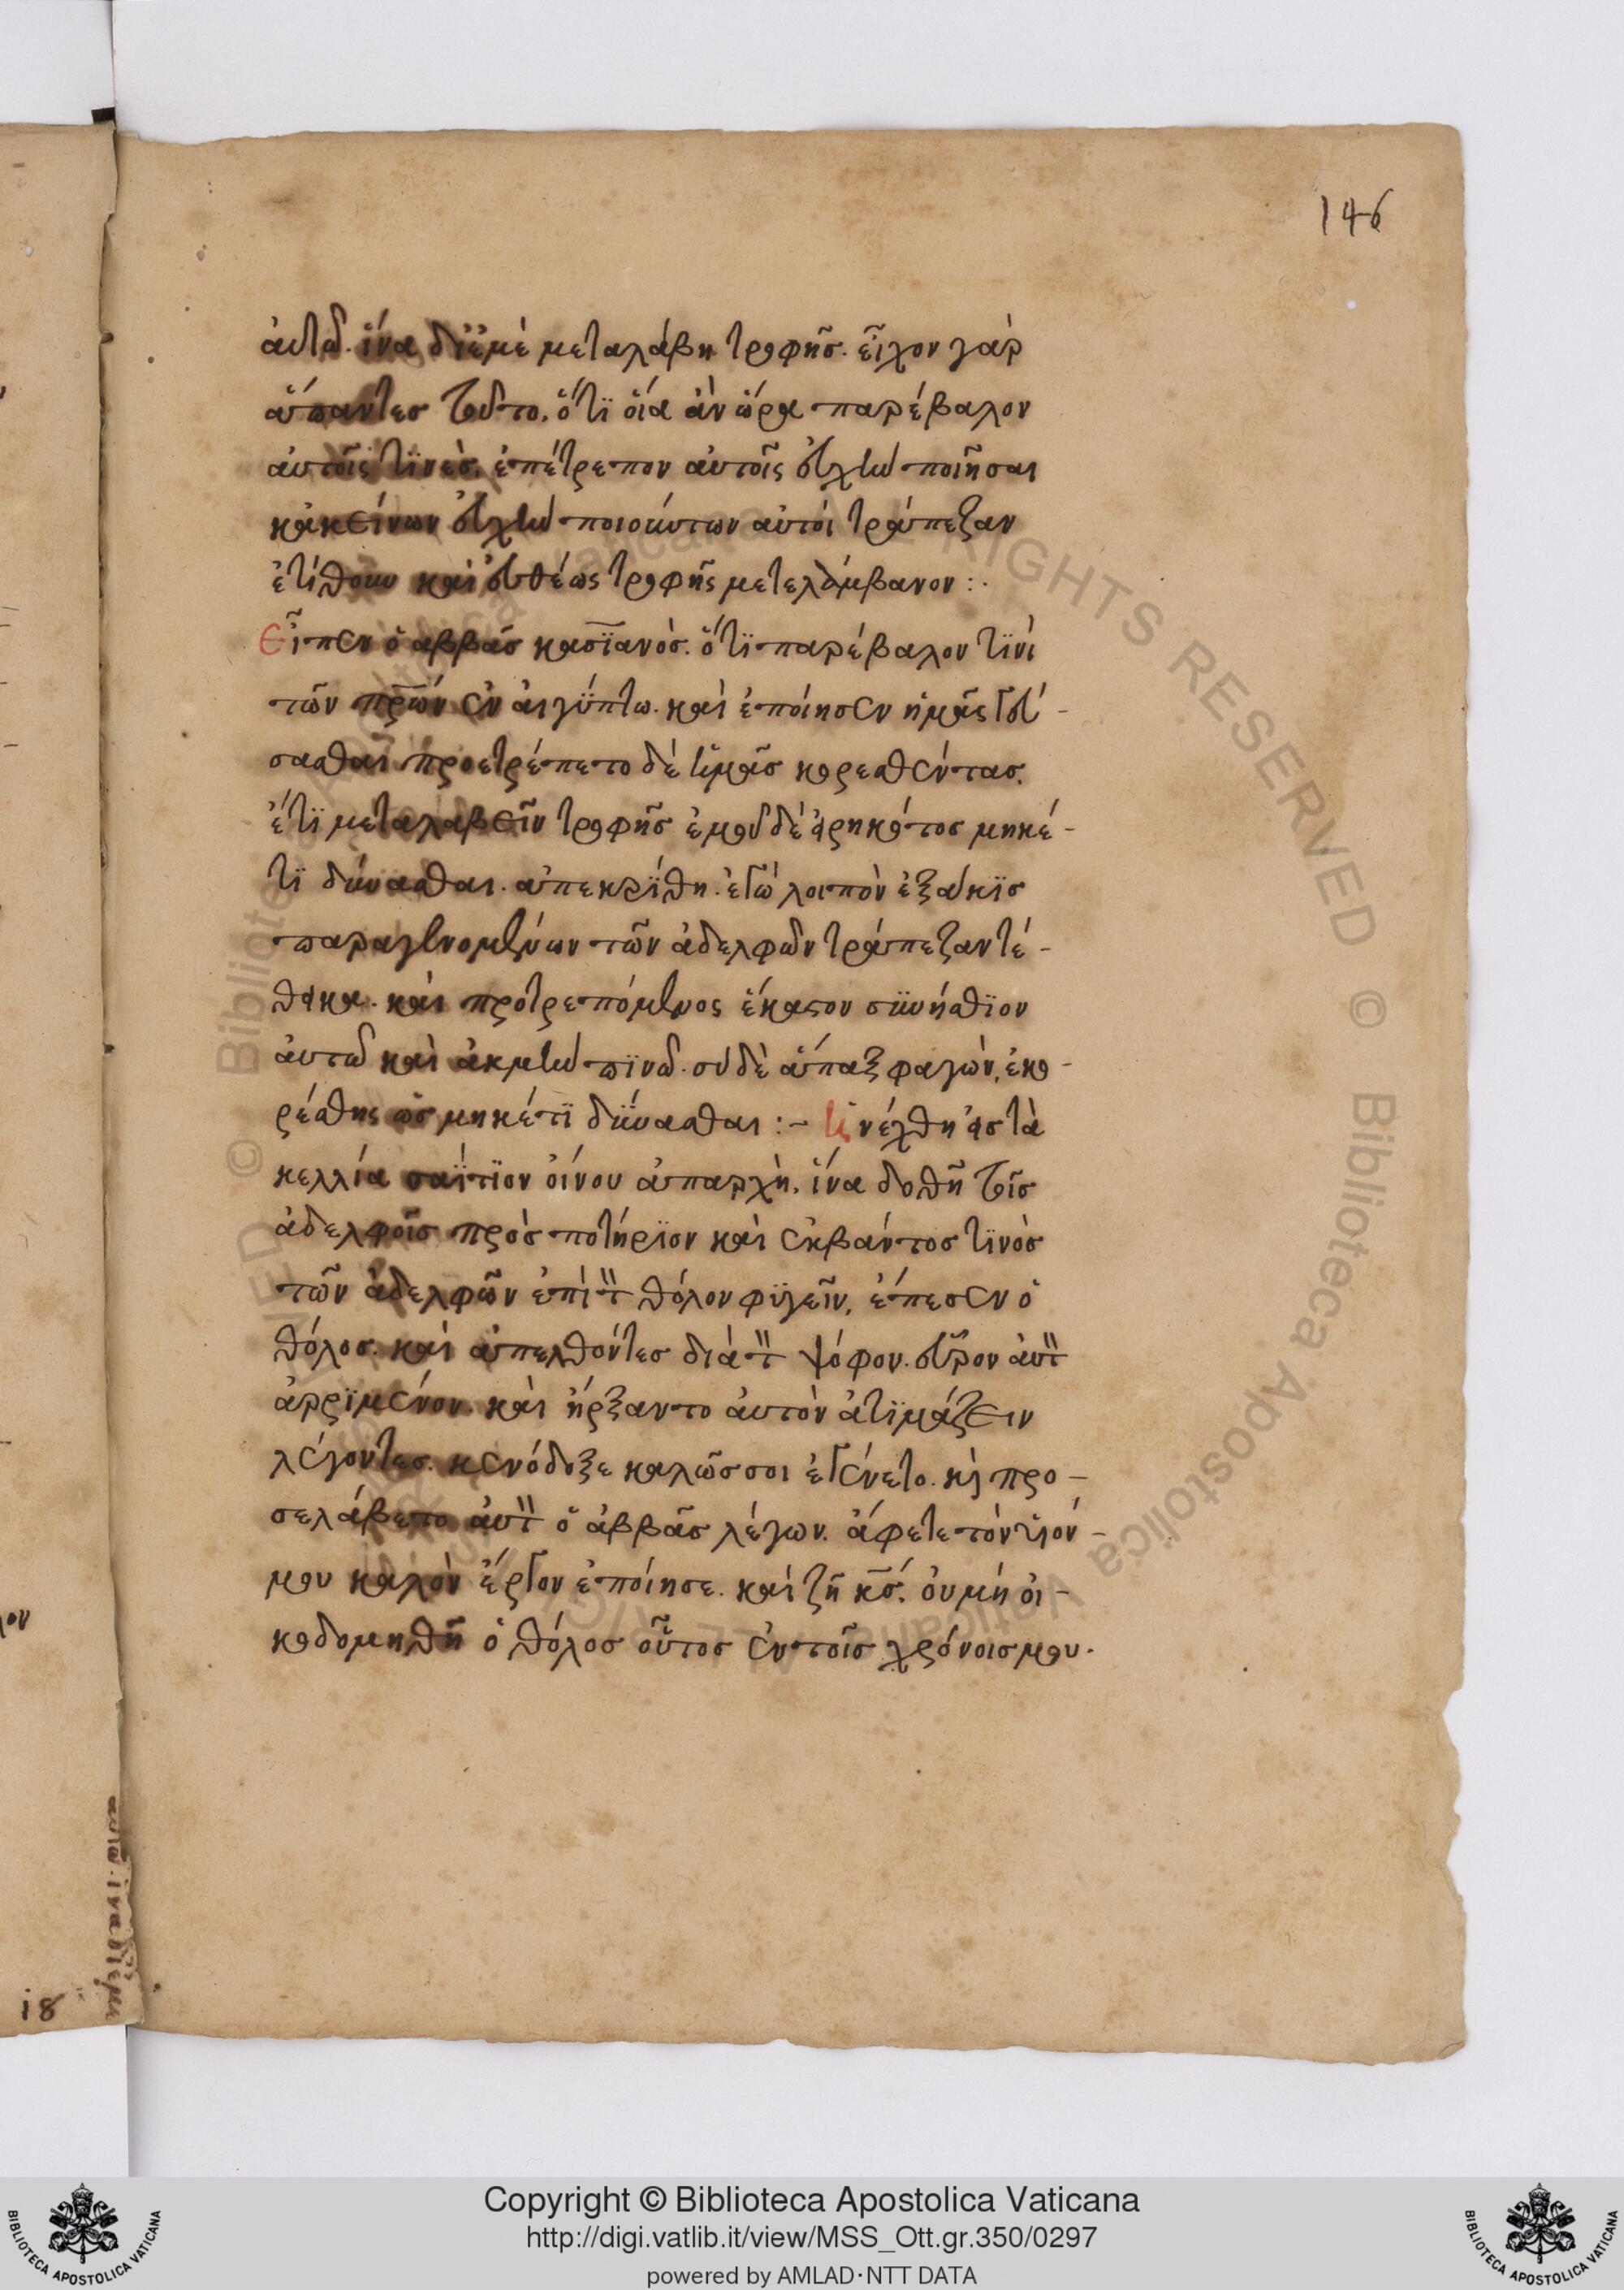 146
ἀυτῶ. ἵνα δϊ ἐμὲ μεταλάβη τροφῆσ. εἶχον γὰρ
ἅπαντεσ τοῦτο. ὅτϊ οἵα ἀν ὥρα παρέβαλον
ἀυτοῖς τϊνὲσ, ἐπέτρεπον αὐτοῖς εὐχὴν ποιῆσαι
κἀκείνων εὐχὴν ποιούντων αὐτοὶ τράπεζαν
ἐτίθουν καὶ εὐθέως τροφῆς μετελάμβανον :.
Εἶπεν ὁ αββᾶσ κασϊανὸσ. ὅτϊ παρέβαλον τϊνὶ
τῶν πρων ἐν ἀιγύπτω. καὶ ἐποίησεν ἡμᾶς γεύ -
σασθαι προετρέπετο δὲ ἡμᾶσ κορεσθέντασ.
ἔτϊ μεταλαβεῖν τροφῆσ ἐμοῦ δὲ εἰρηκότοσ μηκέ -
τϊ δύνασθαι. ἀπεκρϊθη. ἐγὼ λοιπὸν ἑξάκϊσ
παραγενομένων τῶν ἀδελφῶν τράπεζαν τέ -
θεικα. καὶ προτρεπόμενος ἕκαστον σϋνήσθϊον
ἀυτῶ καὶ ἀκμὴν πϊνῶ. σὺ δὲ ἅπαξ φαγὼν, ἐκο -
ρέσθης ὡσ μηκέτϊ δϋνασθαι :- ἠνέχθη εἰσ τὰ
κελλία σαΐτϊον ὀίνου ἀπαρχὴ. ἵνα δοθῆ τοῖσ
ἀδελφοῖσ πρὸσ ποτήρϊον καὶ ἐκβάντοσ τϊνὸσ
τῶν ἀδελφῶν ἐπὶ τ θόλον φϋγεῖν, ἔπεσεν ὁ
θόλοσ. καὶ ἀπελθόντεσ διὰ τ ψόφον. εὗρον ἀυτ
ἀρρϊμένον. καὶ ἤρξαντο ἀυτὸν ἀτϊμάζειν
λέγοντεσ. κενόδοξε καλῶσ σοι ἐγένετο. κὶ προ -
σελάβετο ἀυτ ὁ ἀββᾶσ λέγων. ἄφετε τὸν ϋἱόν -
μου καλὸν ἔργον ἐποίησε. καὶ ζῆ κσ. ὀυ μὴ ὀι -
κοδομηθῆ ὁ θόλοσ οὗτοσ ἐν τοῖσ χρόνοισ μου.
ἀυτῶ. ἵνα δϊ ἐμὲ
Copyright © Biblioteca Apostolica Vaticana
http://digi.vatlib.it/view/MSS_Ott.gr.350/0297
powered by AMLAD·NTT DATA
BIBLIOTECA APOSTOLICA VATICANA
BIBLIOTECA APOSTOLICA VATICANA